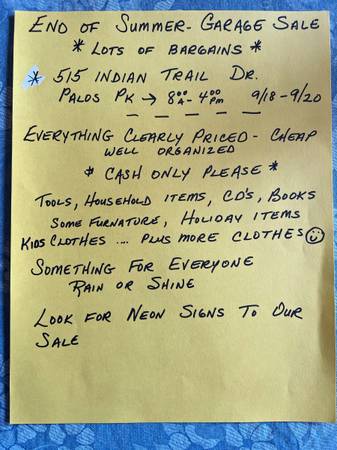 End of Summer - Garage Sale
* Lots of Bargains *
* 515 Indian Trail Dr.
Palos Pk → 8⁰⁰ A - 4⁰⁰ pm 9/18 - 9/20
Everything Clearly Priced - Cheap
Well Organized
* Cash Only Please *
Tools, Household Items, CD's, Books
Some Furnature, Holiday Items
Kids Clothes .... Plus More Clothes ☺
Something For Everyone
Rain or Shine
Look for Neon Signs To Our
Sale